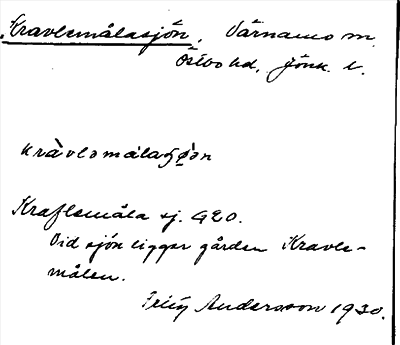 Kravlemålasjön. Värnamo m.
Östbo hd. Jönk. l.
kràvlɘmålaʂö̀n
Kraflemåla sj. G20.
Vid sjön ligger gården Kravle-
målen.
Andersson 1930.